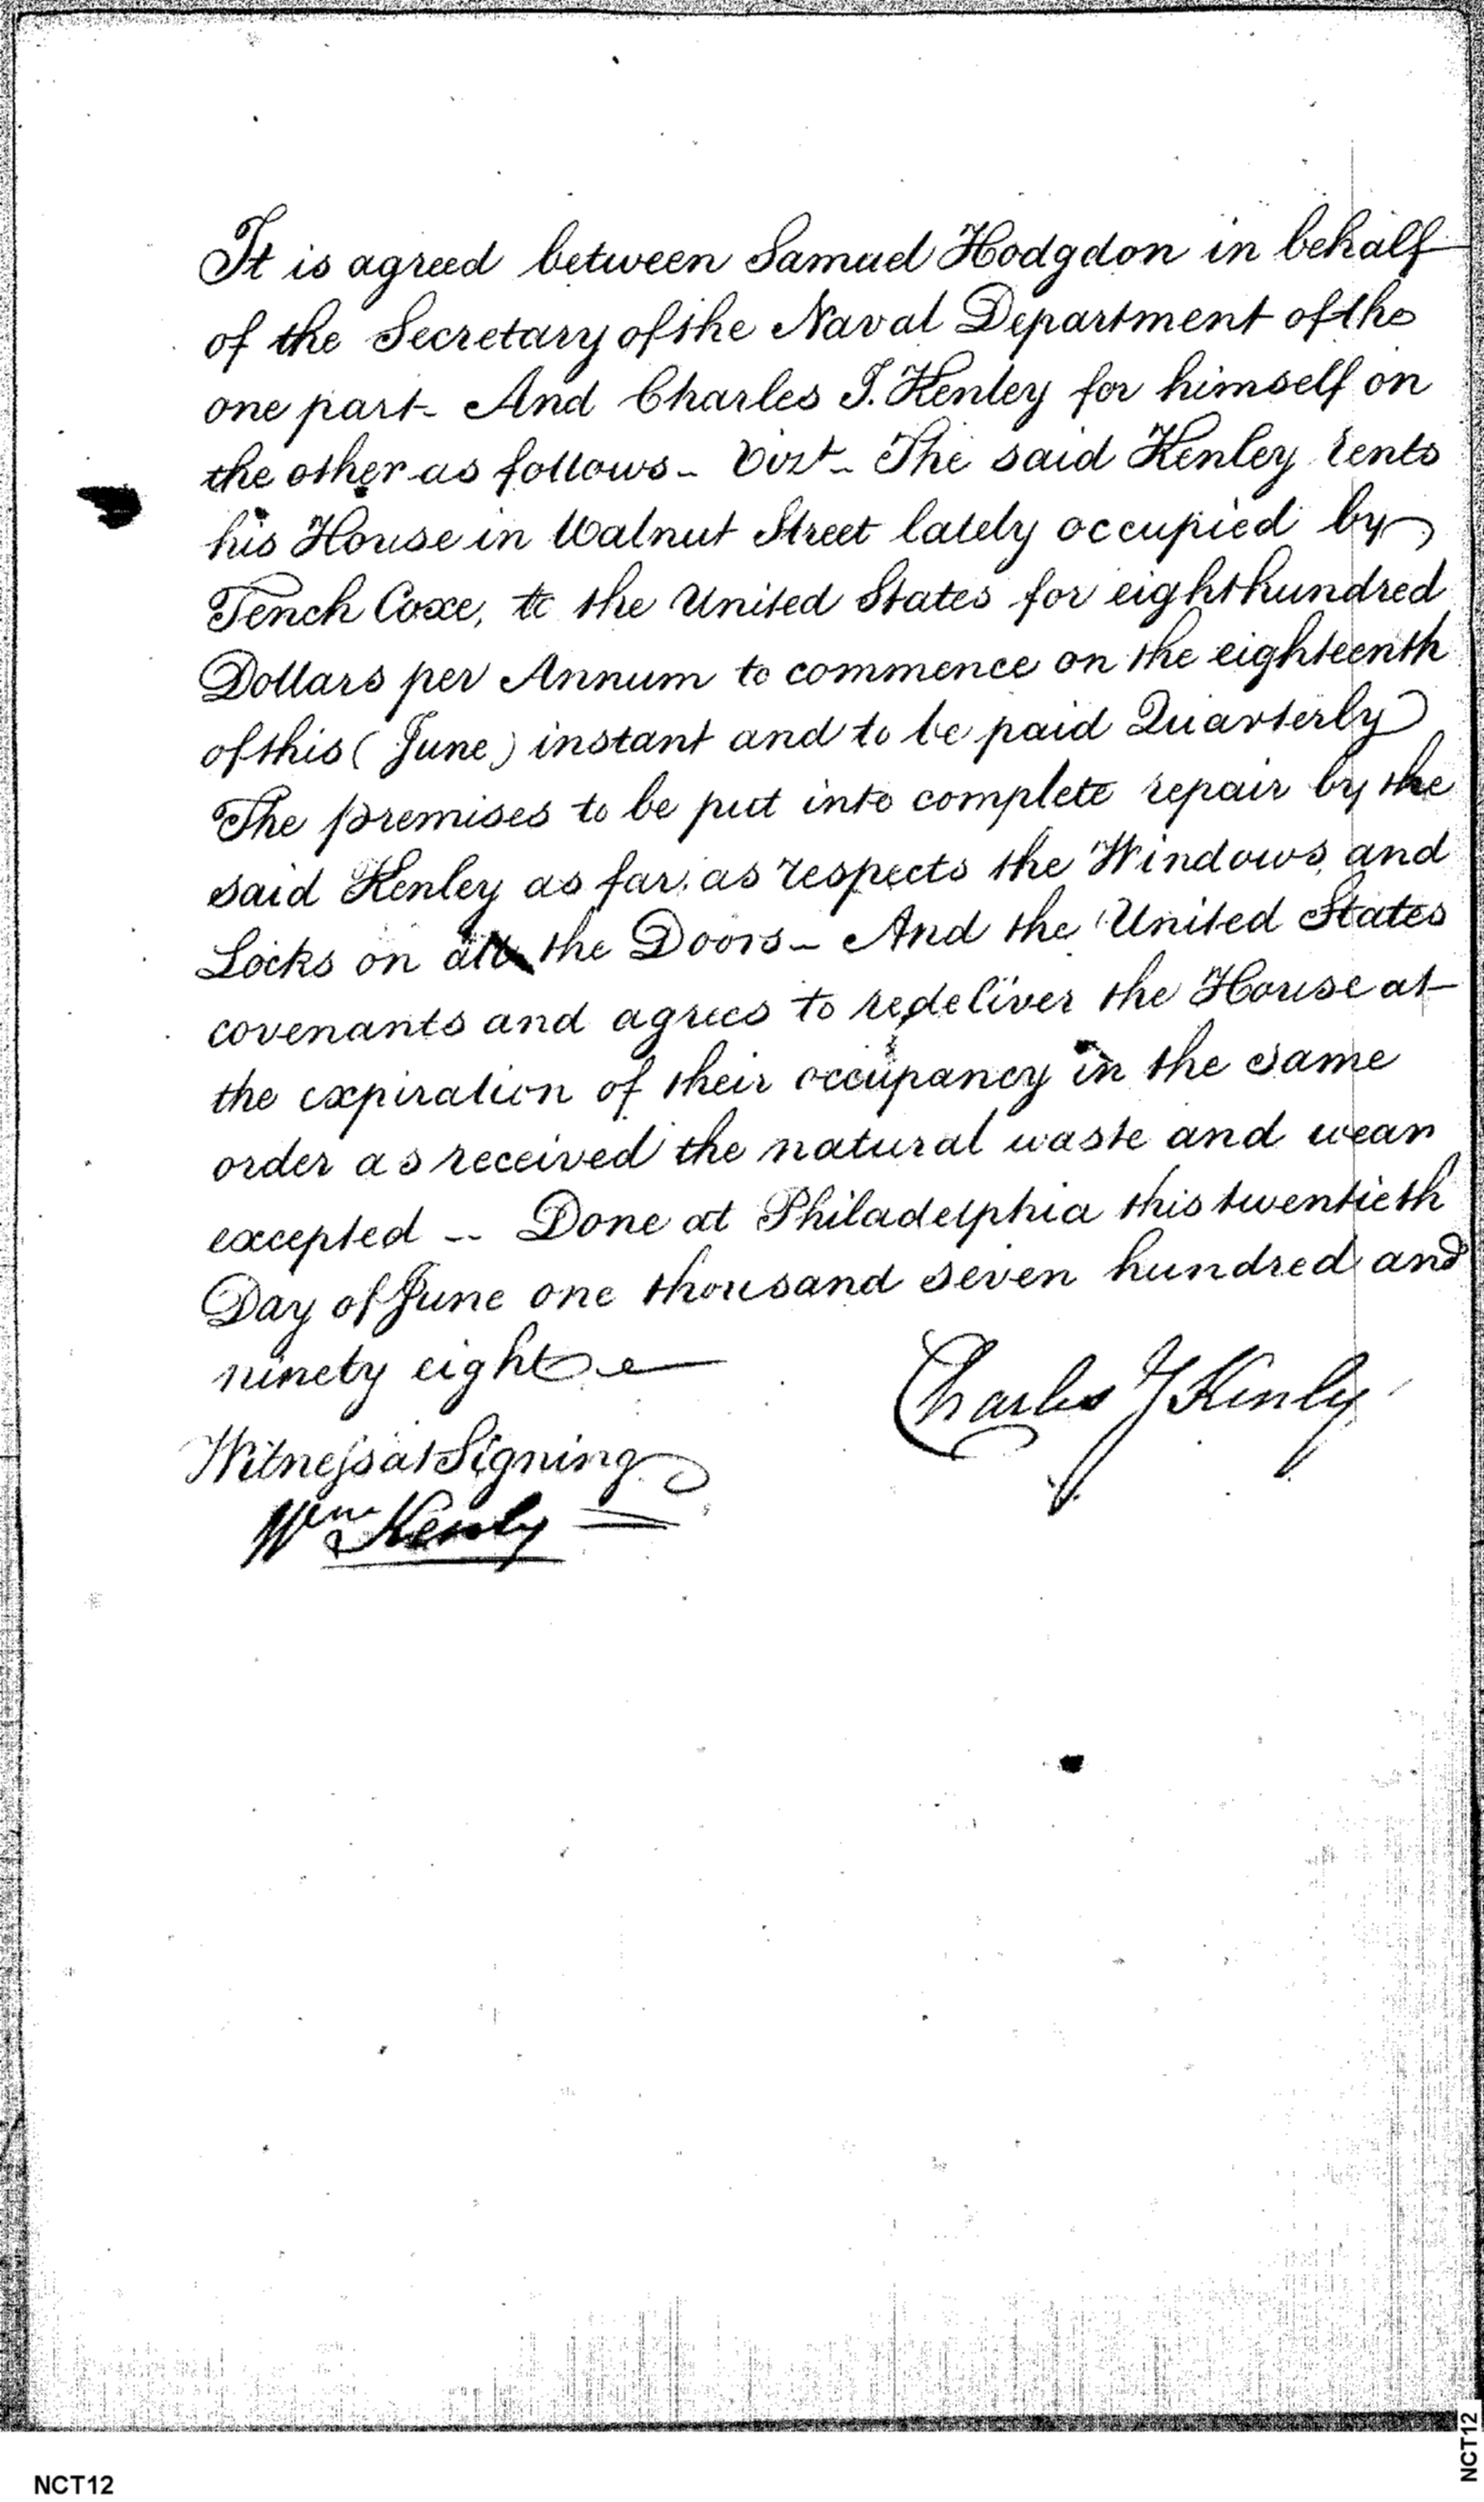 It is agreed between Samuel Hodgdon in behalf
of the Secretary of the Naval Department of the
one part - And Charles J. Kenley for himself on
the other as follows - Vizt - The said Kenley rents
his House in Walnut Street lately occupied by
Tench Coxe, to the United States for eight hundred
Dollars per Annum to commence on the eighteenth
of this (June) instant and to be paid Quarterly
The premises to be put into complete repair by the
said Kenley as far as respects the Windows, and
Locks on all the Doors - And the United States
covenants and agrees to redeliver the House at
the expiration of their occupancy in the same
order as received the natural waste and wear
excepted -- Done at Philadelphia this twentieth
Day of June one thousand seven hundred and
ninety eight
Charles J Kenly
Witness at Signing
Wm Kenly
NCT12
NCT12